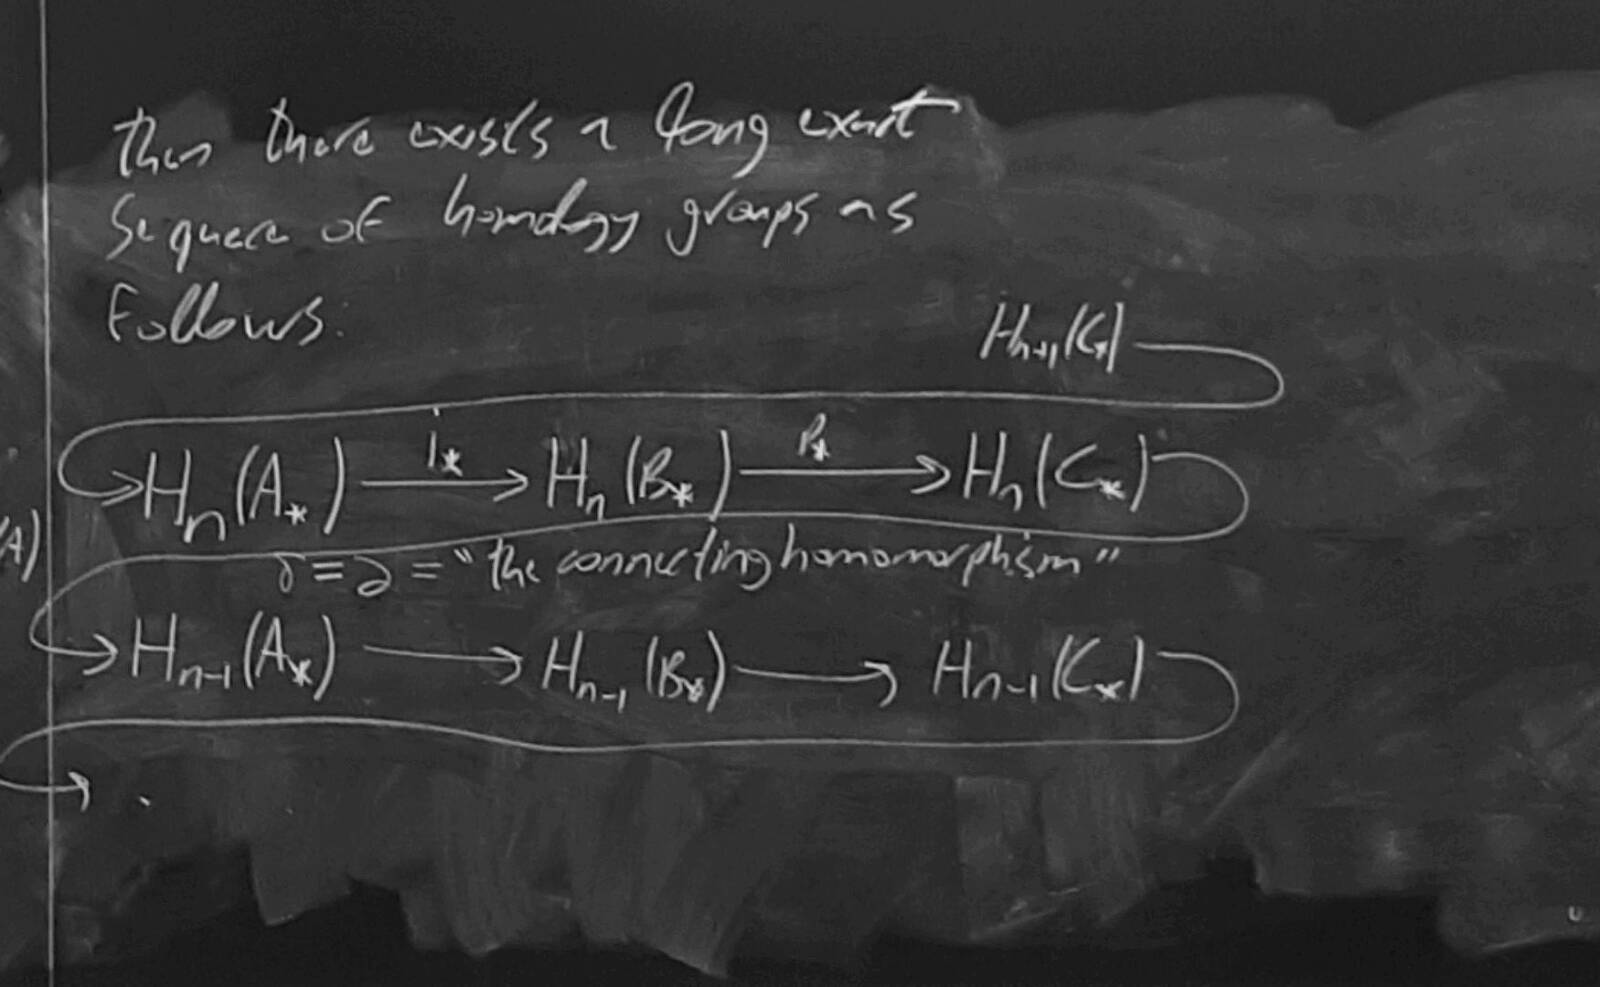 then there exists a long exact
sequence of homology groups as
follows:
Hₙ₊₁(C_*)
i_* p_*
Hₙ(A_*) → Hₙ(B_*) → Hₙ(C_*)
(A)
δ = ∂ = "the connecting homomorphism"
Hₙ₋₁(A_*) → Hₙ₋₁(B_*) → Hₙ₋₁(C_*)